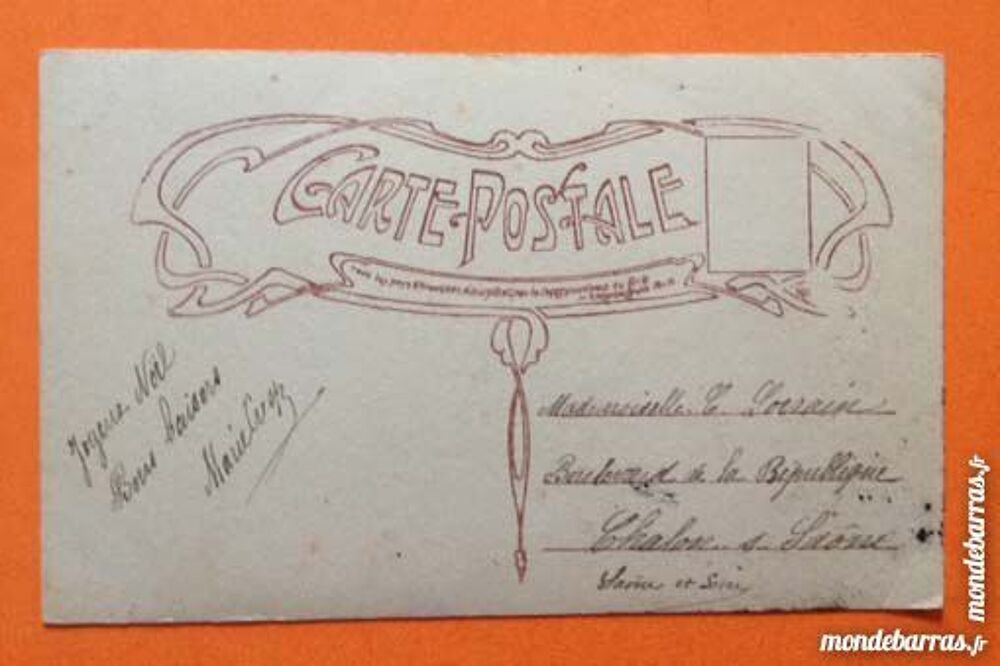 CARTE-POSTALE
Joyeux Noël
Bons baisers
Marie
Mademoiselle C. Lorrain
Boulevard de la République
Chalon s. Saône
Saône et Loire
mondebarras.fr
mondebarras.fr